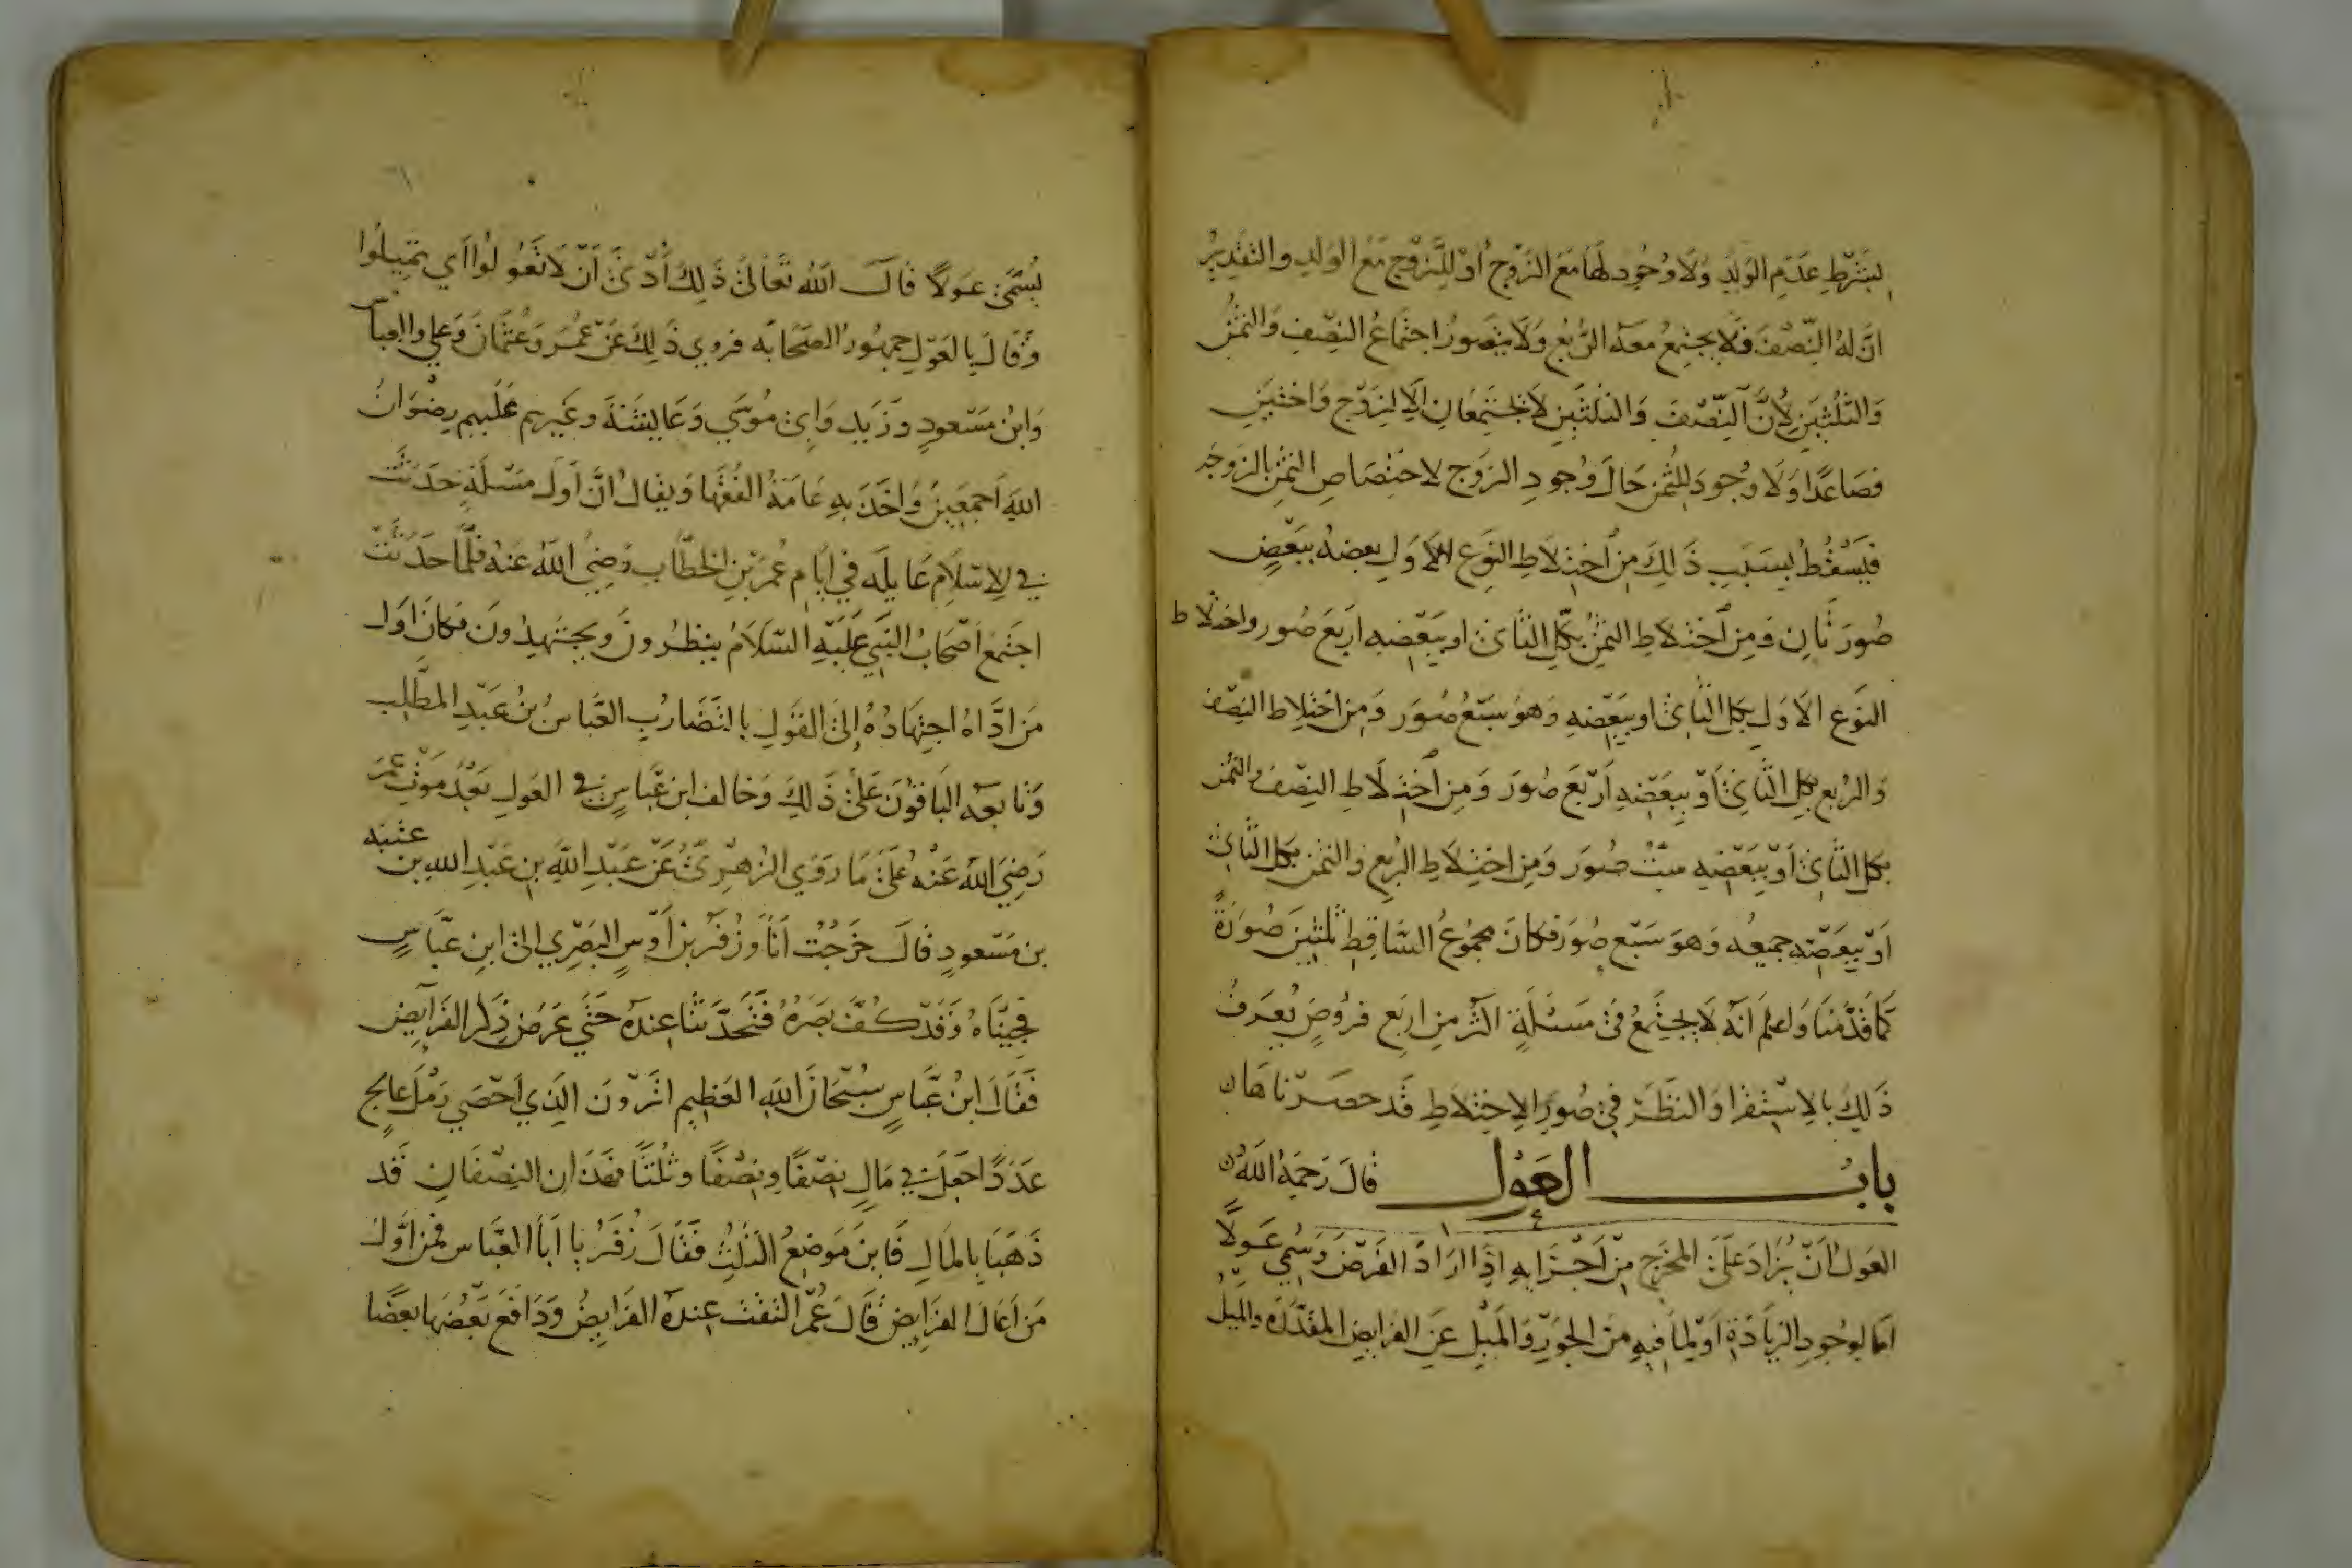 بشرط عدم الولد ولا وجود لها مع الزوج أو للزوج مع الولد والتقدير
ان له النصف فلا يجتمع معه الربع ولا يتصور اجتماع النصف والثمن
والثلثين لأن النصف والثلثين لا يجتمعان إلا لزوج واختين
فصاعدا ولا وجود للثمن حال وجود الزوج لاختصاص الثمن بالزوجة
فيسقط بسبب ذلك من اختلاط النوع الأول بعضه ببعض
صورتان ومن اختلاط الثمن بكل الثاني او ببعضه اربع صور واختلاط
النوع الاول بكل الثاني او ببعضه وهو سبع صور ومن اختلاط النصف
والربع بكل الثاني أو ببعضه أربع صور ومن اختلاط النصف والثمن
بكل الثاني أو ببعضه ست صور ومن اختلاط الربع والثمن بكل الثاني
أو ببعضه جميعه وهو سبع صور فكان مجموع الساقط ثلثين صورة
كما قدمنا واعلم انه لا يجتمع في مسئلة اكثر من اربع فروض يعرف
ذلك بالاستقرا والنظر في صور الاختلاط قد حصرناها
باب العول قال رحمة الله
العول أن يزاد على المخرج من أجزايه اذا ازاد الفرض وسمي عولا
اما لوجود الزيادة أو لما فيه من الجور والميل عن الفرايض المقدرة والميل
يسمى عولا قال الله تعالى ذلك أدنى أن لا تعولوا اي تميلوا
وقال بالعول جمهور الصحابه فروي ذلك عن عمر وعثمان وعلي والعباس
وابن مسعود وزيد وابى موسي وعايشة وغيرهم عليهم رضوان
الله أجمعين واخذ به عامة الفقها ويقال ان أول مسئلة حدثت
في الاسلام عايله في أيام عمر بن الخطاب رضي الله عنه فلما حدثت
اجتمع أصحاب النبي عليه السلام ينظرون ويجتهدون فكان اول
من اداه اجتهاده إلى القول بالتضارب العباس بن عبد المطلب
وتابعه الباقون على ذلك وخالف ابن عباس في العول بعد موت عمر
رضي الله عنه على ما روي الزهري عن عبد الله بن عبد الله بن عتبه
بن مسعود قال خرجت انا وزفر بن أوس البصري الى ابن عباس
فجيناه وقد كف بصره فتحدثنا عنده حتي عرض ذكر الفرايض
فقال ابن عباس سبحان الله العظيم اترون الذي احصي رمل عالج
عددا جعل في مال نصفا ونصفا وثلثا فهذان النصفان قد
ذهبا بالمال فاين موضع الثلث فقال زفر يا أبا العباس فمن أول
من أعال الفرايض قال عمر التفت عنده الفرايض ودافع بعضها بعضا